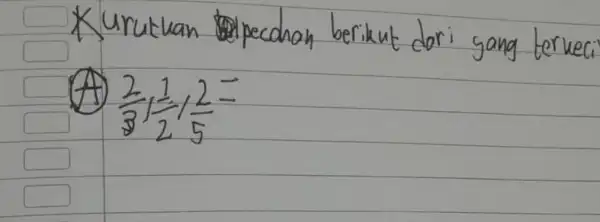 Kurutkan pecahan berikut dari yang terkeci
A 2/3, 1/2, 2/5 =